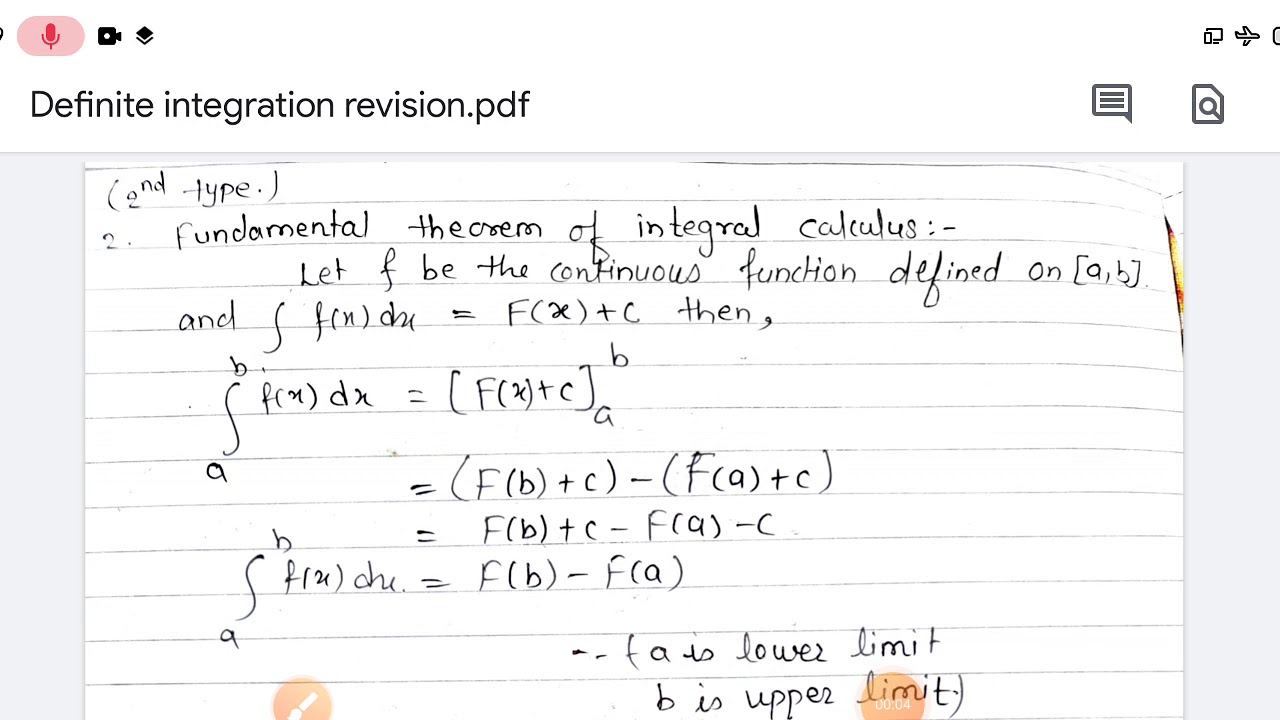 Definite integration revision.pdf
(2nd type.)
2. Fundamental theorem of integral calculus:-
Let f be the continuous function defined on [a,b].
and ∫ f(x) dx = F(x)+c then,
∫ₐᵇ f(x) dx = [F(x)+c]ₐᵇ
= (F(b)+c) - (F(a)+c)
= F(b)+c - F(a) -c
∫ₐᵇ f(x) dx. = F(b) - F(a)
-- (a is lower limit
b is upper limit)
00:04